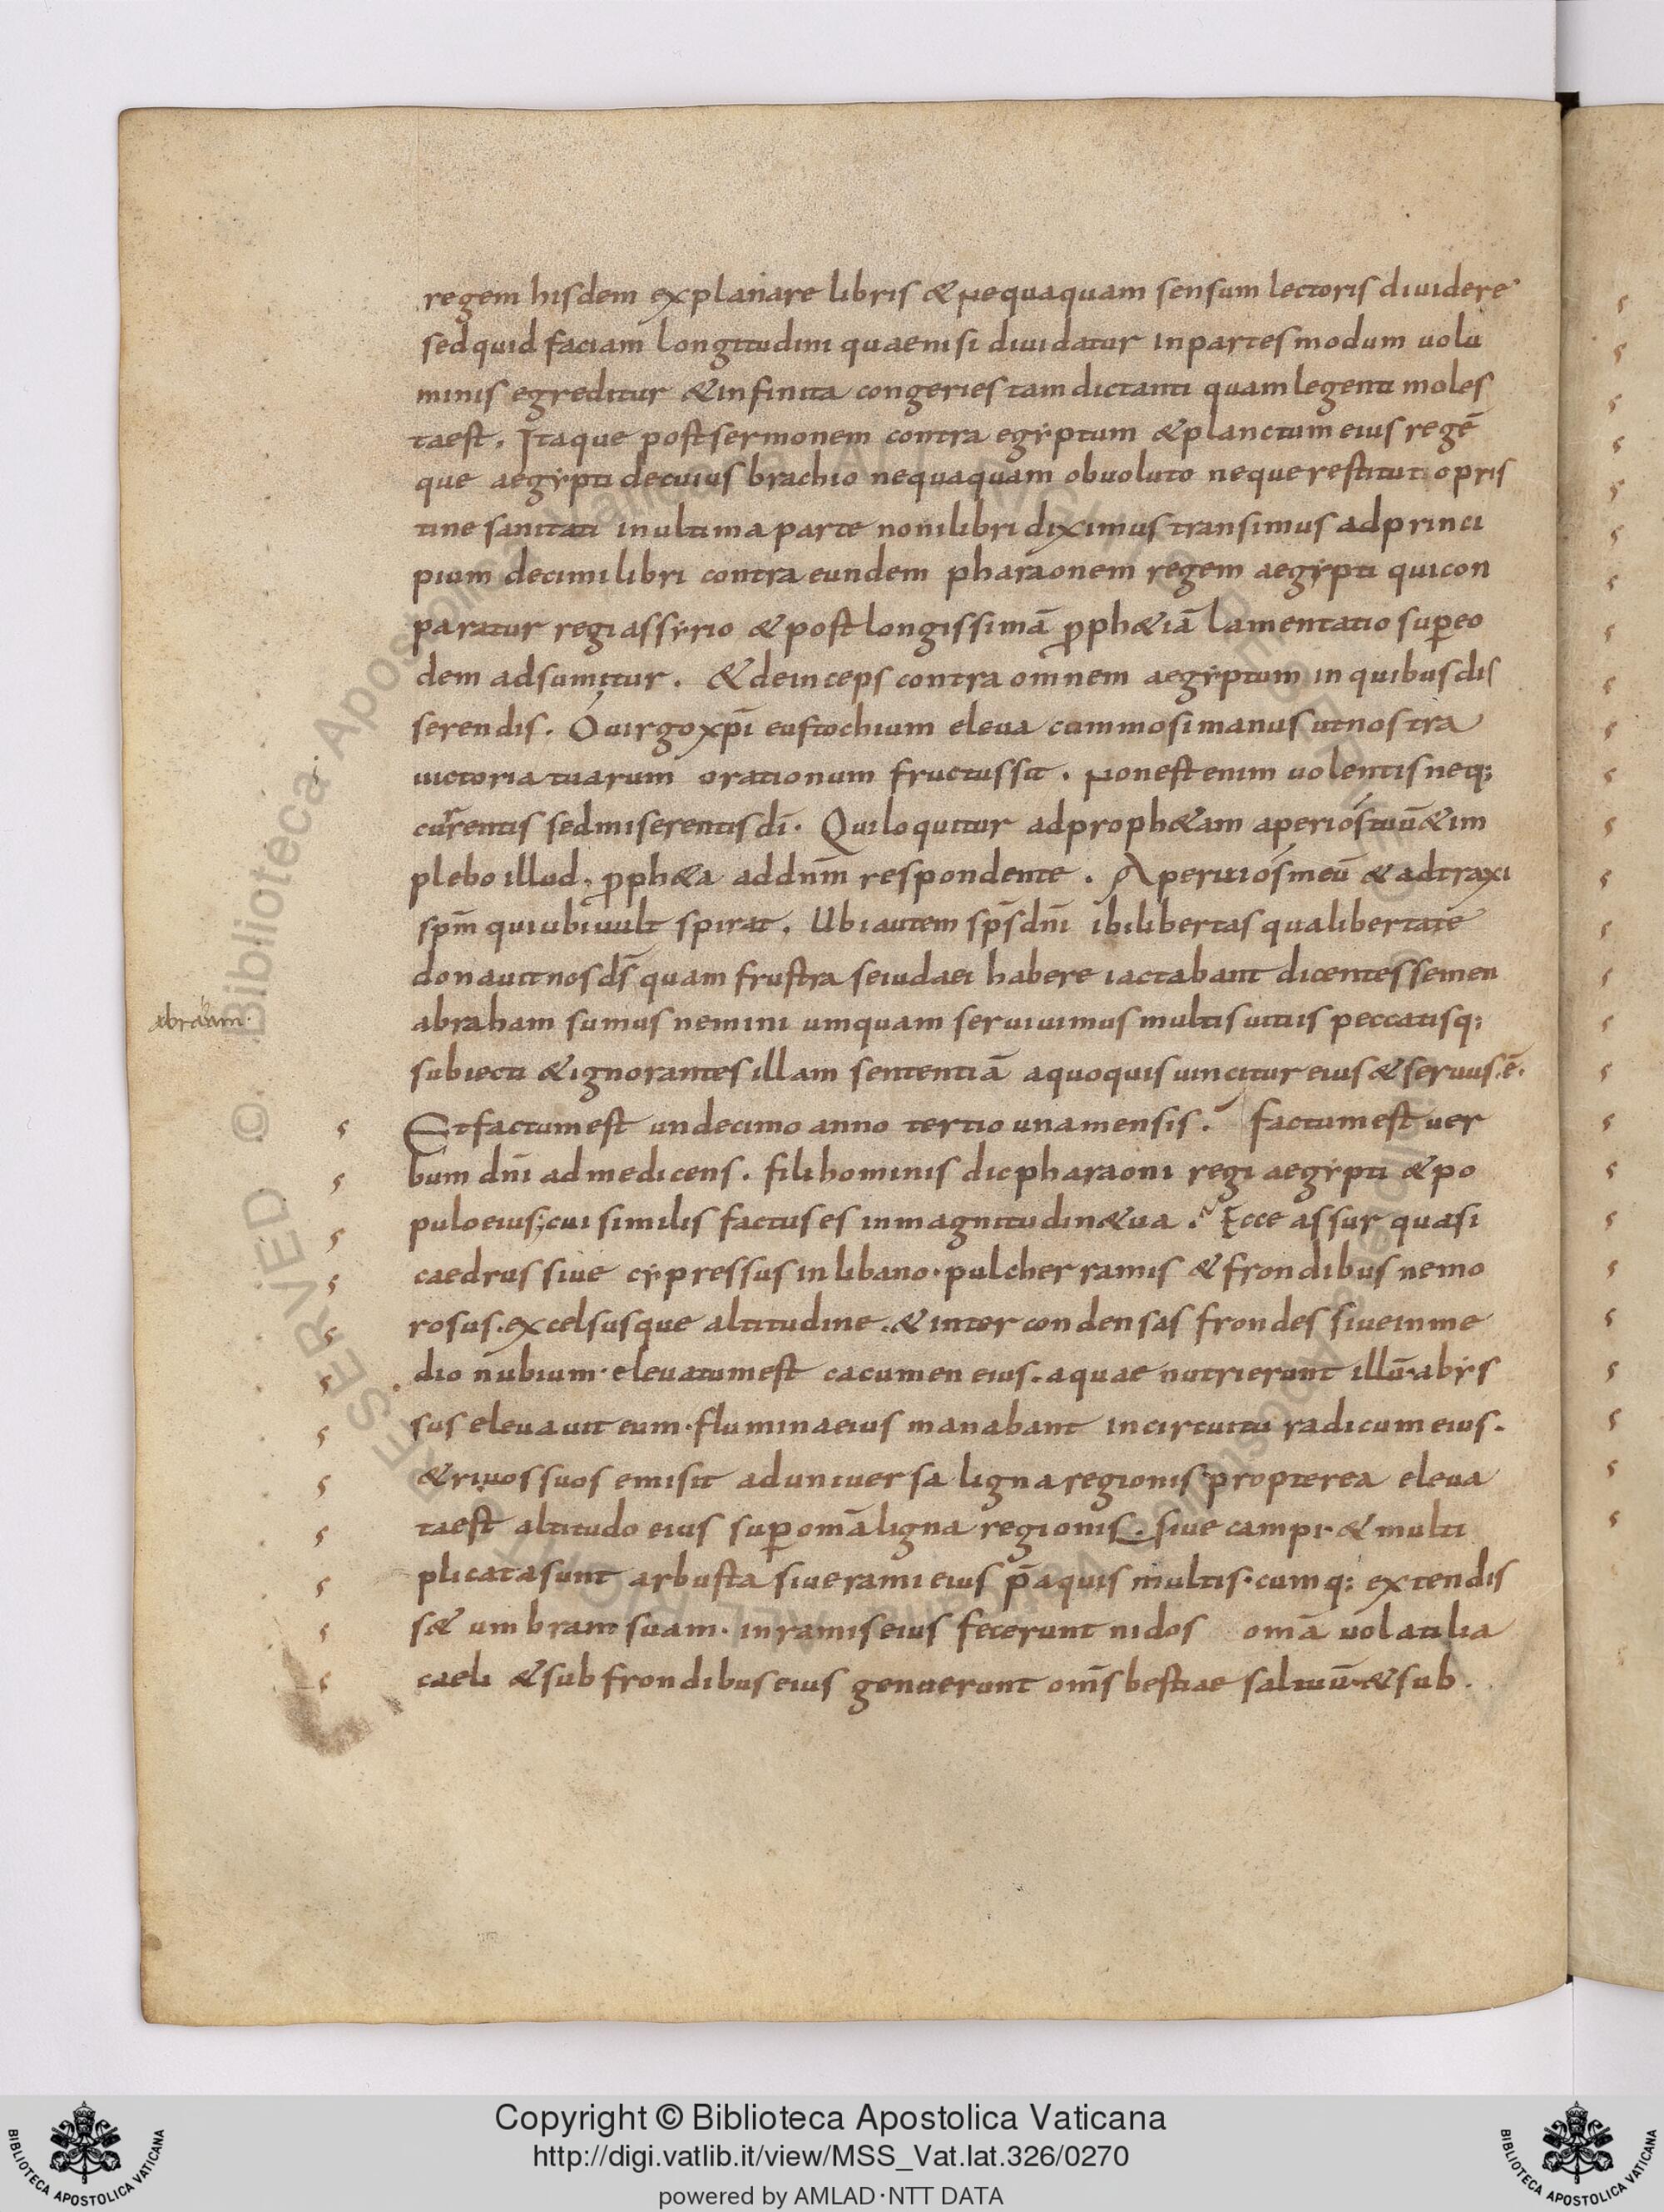 regem hisdem explanare libris & nequaquam sensum lectoris diuidere
sed quid faciam longitudini quae nisi diuidatur in partes modum uolu
minis egreditur & infinita congeries tam dictanti quam legenti moles
ta est. Itaque post sermonem contra egyptum & planctum eius regē
que aegypti de cuius brachio nequaquam obuoluto neque restituto pris
tine sanitati in ultima parte noni libri diximus transimus ad princi
pium decimi libri contra eundem pharaonem regem aegypti qui con
paratur regi assyrio & post longissimā ꝓph&iā lamentatio suꝑ eo
dem adsumitur. & deinceps contra omnem aegyptum in quibus dis
serendis. O uirgo xp̄i eustochium eleua cum mosi manus ut nostra
uictoria tuarum orationum fructus sit. Non est enim uolentis neq;
currentis sed miserentis dī. Qui loquitur ad proph&am aperi os tuū & im
plebo illud, ꝓph&a ad dn̄m respondente. Aperui os meū & adtraxi
sp̄m qui ubi uult spirat. Ubi autem sp̄s dn̄i ibi libertas qua libertate
donauit nos ds̄ quam frustra se iudaei habere iactabant dicentes semen
abraham.
abraham sumus nemini umquam seruiuimus multis uitiis peccatisq;
subiecti & ignorantes illam sententiā a quo quis uincitur eius & seruus.ē.
Et factum est undecimo anno tertio una mensis. factum est uer
bum dn̄i ad me dicens. fili hominis dic pharaoni regi aegypti & po
pulo eius; cui similis factus es in magnitudin& ua. Ecce assur quasi
caedrus siue cypressus in libano. pulcher ramis & frondibus nemo
rosus. excelsusque altitudine. & inter condensas frondes siue in me
dio nubium. eleuatum est cacumen eius. aquae nutrierunt illū. abys
sus eleuauit eum. flumina eius manabant in circuitu radicum eius.
& riuos suos emisit ad uniuersa ligna regionis propterea eleua
ta est altitudo eius suꝑ omā ligna regionis. siue campi. & multi
plicata sunt arbusta siue rami eius p̄ aquis multis. cumq; extendis
s& umbram suam. in ramis eius fecerunt nidos omā uolatilia
caeli & sub frondibus eius genuerunt om̄s bestiae saltuū. & sub.
Copyright © Biblioteca Apostolica Vaticana
http://digi.vatlib.it/view/MSS_Vat.lat.326/0270
powered by AMLAD·NTT DATA